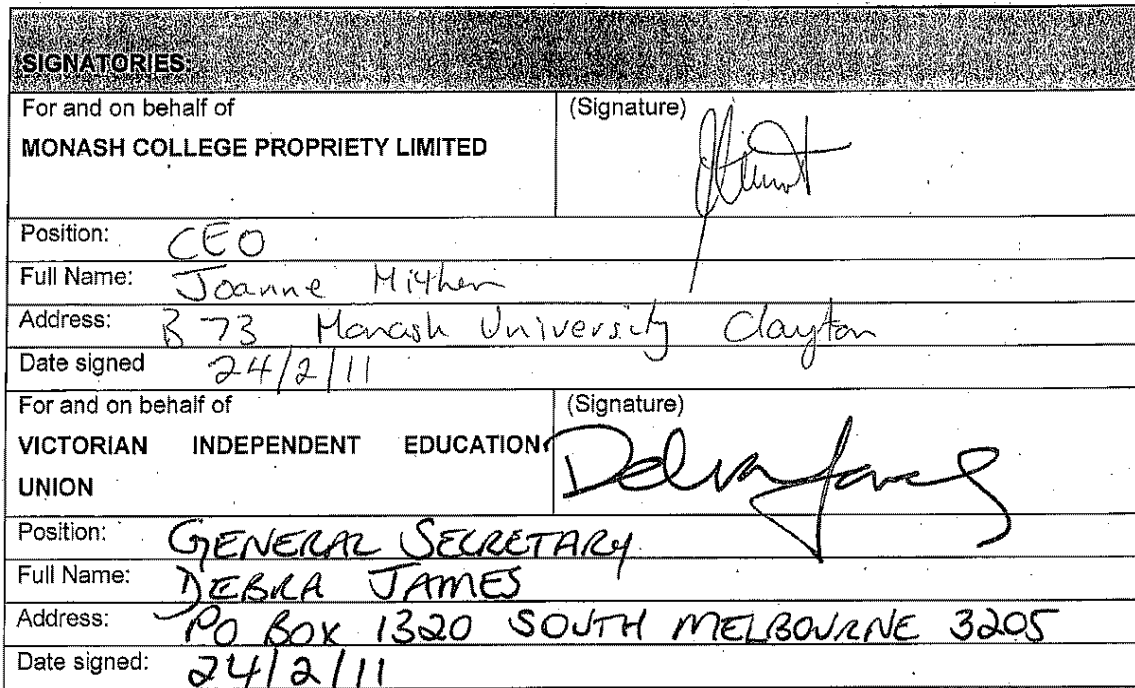 SIGNATORIES:
For and on behalf of
(Signature)
MONASH COLLEGE PROPRIETY LIMITED
Position: CEO
Full Name: Joanne Mithen
Address: B 73 Monash University Clayton
Date signed 24/2/11
For and on behalf of
(Signature)
VICTORIAN INDEPENDENT EDUCATION
UNION
Debra James
Position: GENERAL SECRETARY
Full Name: DEBRA JAMES
Address: PO BOX 1320 SOUTH MELBOURNE 3205
Date signed: 24/2/11